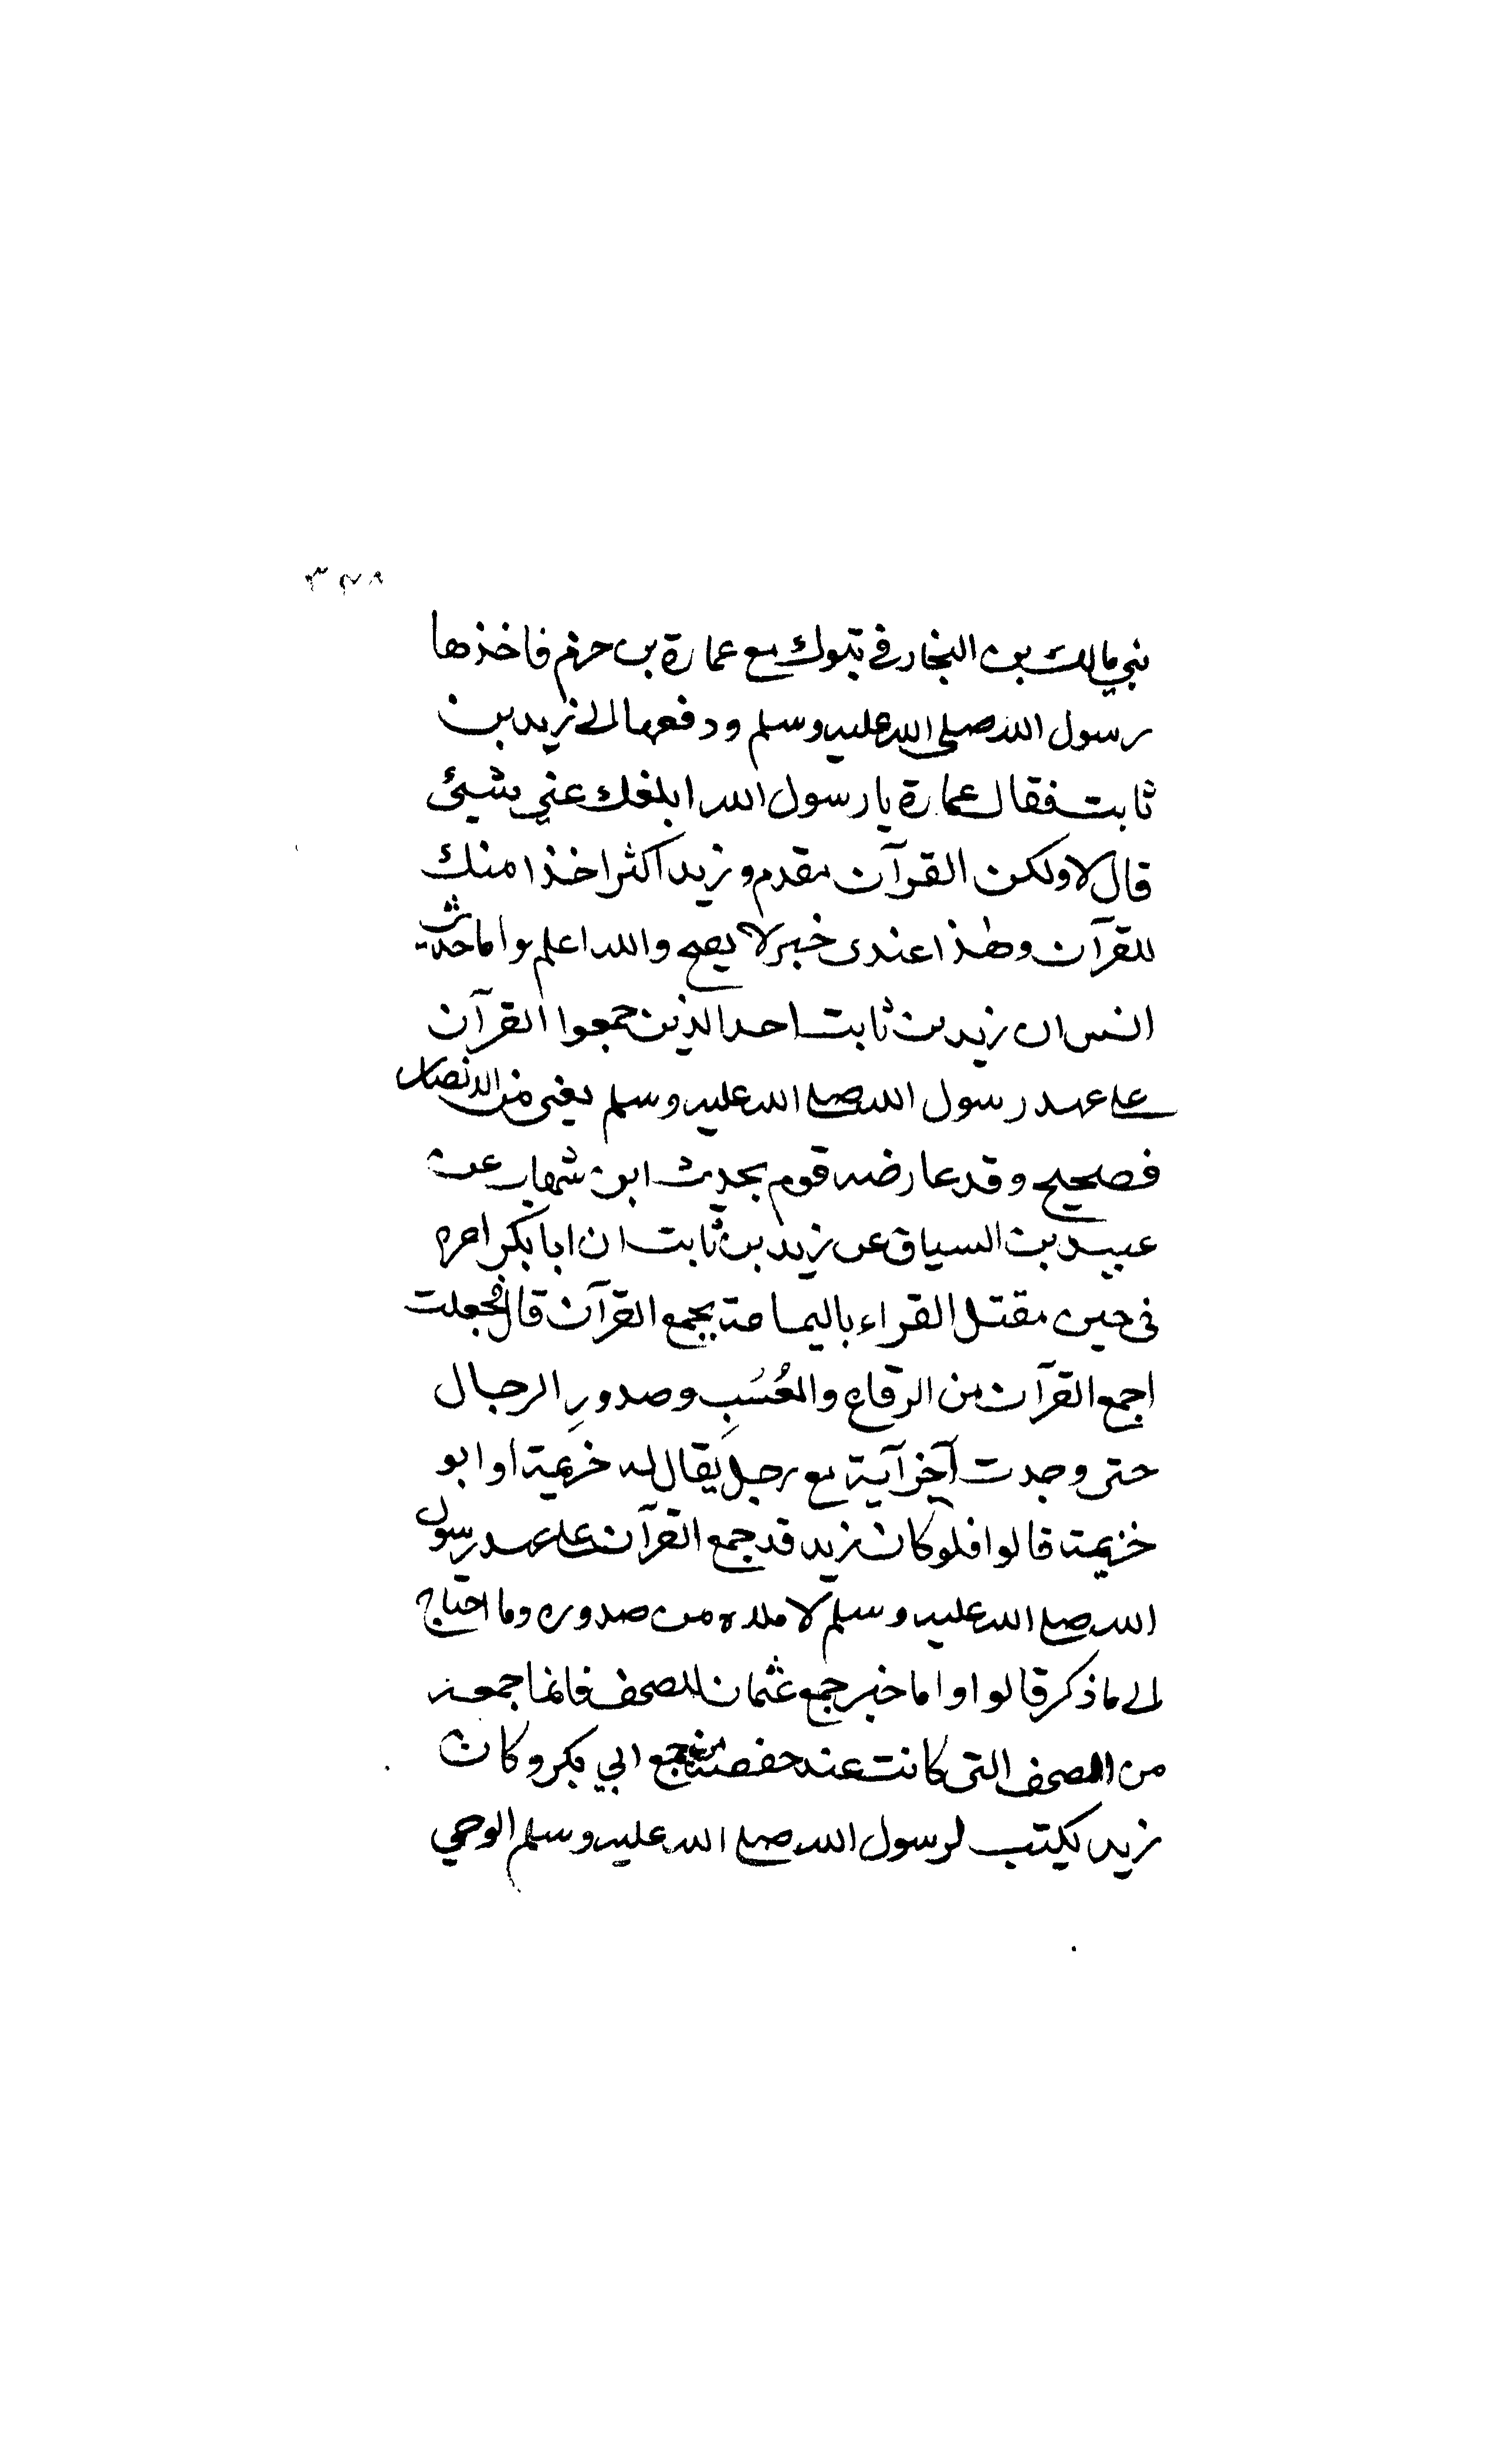 ٣٤٨
بني مالك بن النجار في تبوك مع عمارة بن حزم فاخذها
رسول الله صلى الله عليه وسلم ودفعها الى زيد بن
ثابت فقال عمارة يا رسول الله ابلغك عني شيئ
قال لا ولكن القرآن مقدم وزيد اكثر اخذا منك
للقرآن وهذا عندى خبر لا يصح والله اعلم واما حديث
انس ان زيد بن ثابت احد الذين جمعوا القرآن
على عهد رسول الله صلى الله عليه وسلم يعنى من الانصار
فصحيح وقد عارضه قوم بحديث ابن شهاب عن
عبيد بن السياق عن زيد بن ثابت ان ابا بكر امره
فى حين مقتل القراء باليمامة بجمع القرآن قال فجعلت
اجمع القرآن من الرقاع والعُسُبِ وصدورِ الرجال
حتى وجدت آخر آية مع رجل يقال له خزيمة او ابو
خزيمة قالوا فلو كان زيد قد جمع القرآن على عهد رسول
الله صلى الله عليه وسلم لاملاه من صدوره وما احتاج
الى ما ذكر قالوا واما خبر جمع عثمان للمصحف فانما جمعه
من الصحف التى كانت عند حفصة من جمع ابي بكر وكان
زيد يكتب لرسول الله صلى الله عليه وسلم الوحي